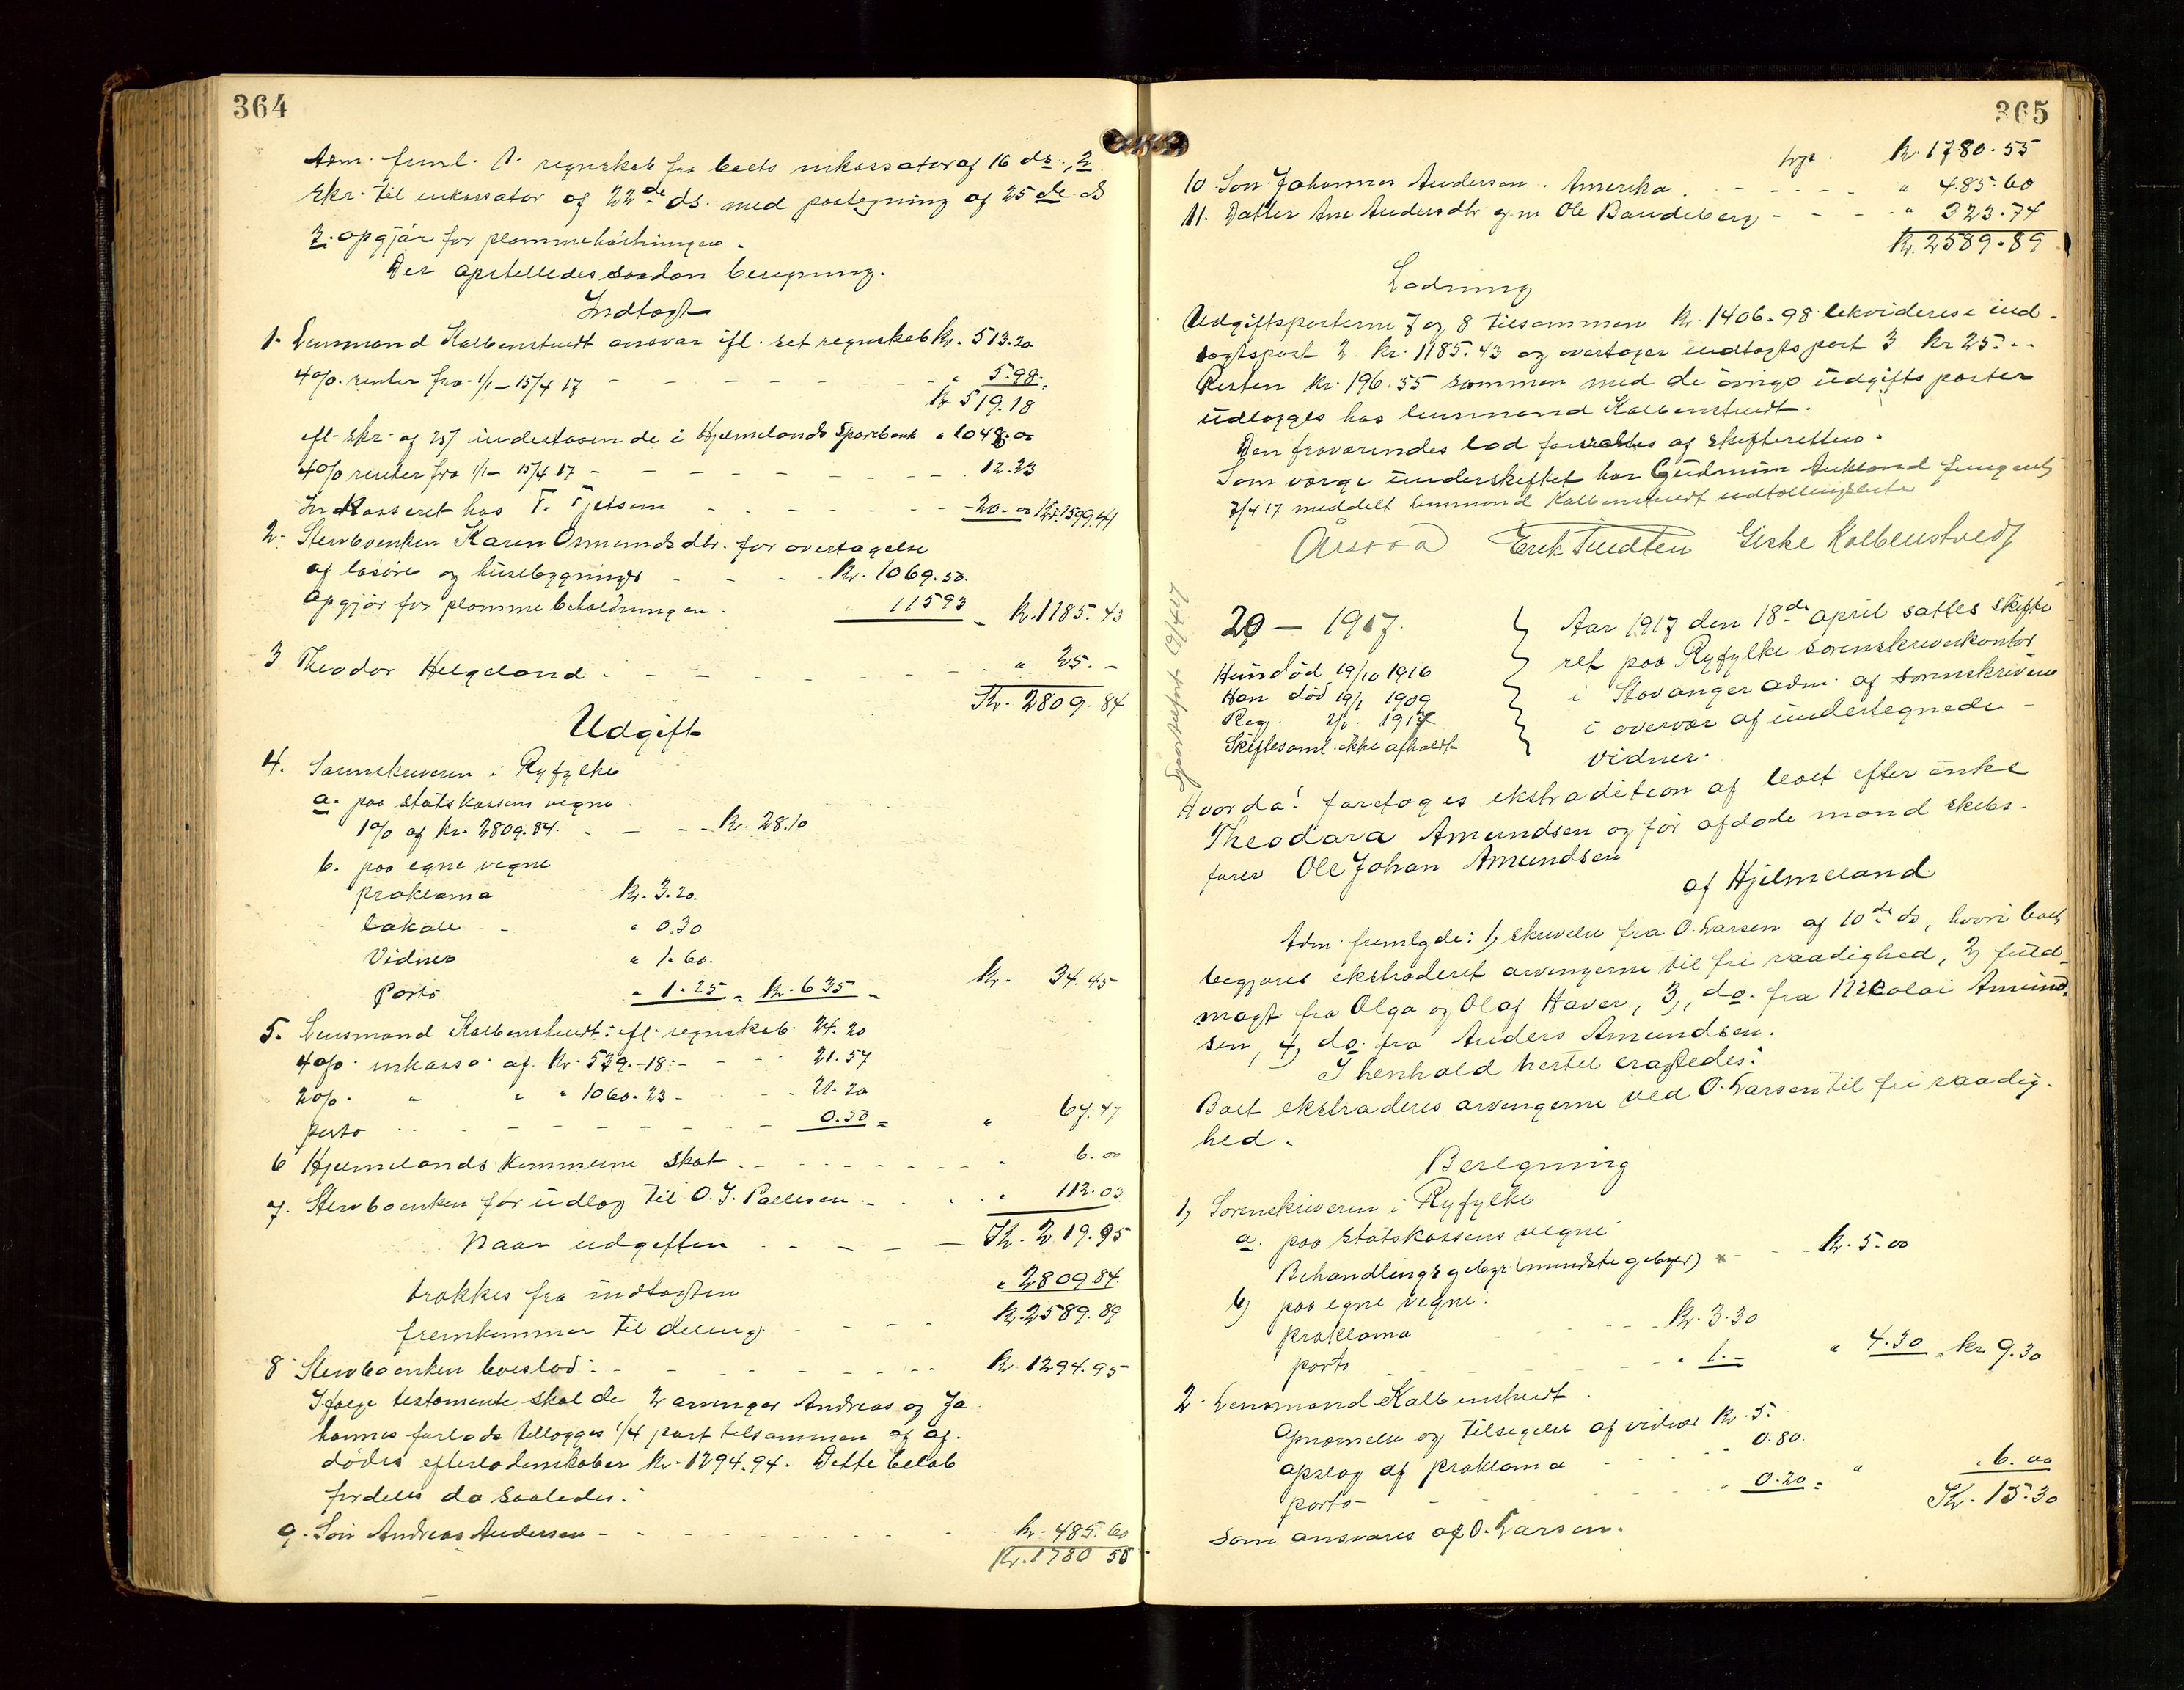 364
Adm. freml. 1. regnskab fra boets inkassator af 16 ds., 2
skr. til inkassator af 22de ds. med paategning af 25de ds
3. opgjør for plommehøstningen.
Der opstilledes saadan beregning.
Indtægt
1. Lensmand Kolbenstvedt ansvar ifl. sit regnskab Kr. 513.20
4 o/o. renter fra 1/1 - 15/4 17 - - - - - - - " 5.98.
Kr 519.18
ifl. skr. af 25/ indestaaende i Hjelmelands Sparebank " 1048.00
4 o/o renter fra 1/1 - 15/4 17 - - - - - - - 12.23
Indkasseret hos T. Tjetsem - - - - - - 20.00 Kr. 1599.41
2. Stervboenken Karen Osmundsdtr. for overtagelse
af løsøre og husebygninger - - - Kr. 1069.50.
Opgjør for plommebeholdningen. 115 93 - Kr. 1185.43
3 Theodor Helgeland. - - - - - - - " 25. -
Kr. 2809.84
Udgift
4. Sorenskriveren i Ryfylke
a. paa statskassens vegne
1 o/o af Kr. 2809.84. - - - Kr. 28.10
b. paa egne vegne
proklama Kr. 3.20.
lokale - " 0.30
Vidner " 1.60.
Porto " 1.25 = Kr. 6 35 = Kr. 34.45
5. Lensmand Kolbenstvedt: ifl. regnskab. 24.20
4 o/o. inkasso af. Kr. 539.-18.- - - 21.57
2 o/o. " " " 1060.23 - - - 21.20
porto - - - - - - - 0.50 = " 67.47
6 Hjelmelands Kommune skat - - - - - - 6.00
7. Stervboenken for udlæg til O. J. Pallesen - - - " 112.03
Naar udgiften - - - - Kr. 2 19.95
trækkes fra indtægten " 2809 84.
fremkommer til deling - - - - Kr. 2589.89
8 Stervboenken boeslod: - - - - - - - Kr. 1294.95
Ifølge testamente skal de 2 arvinger Andreas og Jo
hannes forlods tillægges 1/4 part tilsammen af af-
dødes efterladenskaber Kr. 1294.94. Dette beløb
fordeles da saaledes:
9. Søn Andreas Andersen - - - - - - - Kr. 485.60
Kr. 1780 55
365
Kr. 1780.55
10. Søn Johannes Andersen. Amerika. - - - - " 485.60
11. Datter Ane Andersdtr g. m Ole Bandeberg - - - - " 323.74
Kr. 2589.89
Lodning
Udgiftsposterne 7 og 8 tilsammen Kr. 1406.98 likvideres i ind-
tægtspost 2 Kr. 1185.43 og overtager indtægtspost 3 Kr 25. --
Resten Kr. 196.55 sammen med de øvrige udgifts poster
udlægges hos lensmand Kolbenstvedt.
Den fraværendes lod forvaltes af skifteretten.
Som værge underskiftet har Gudmun Aukland fungert
7/4 17 meddelt lensmand Kolbenstvedt udtællingsliste
Aarsvoa Erik Tuedten Giske Kolbenstvedt
20 - 1917.
Hun død 19/10 1916
Han død 19/1 1909
Reg. 2/1. 1917
Skiftesaml. ikke afholdt
Aar 1917 den 18de april sattes skifte
ret paa Ryfylke sorenskriverkontor
i Stavanger adm. af sorenskriveren
i overvær af undertegnede -
vidner.
Hvorda! foretoges ekstradition af boet efter enke
Theodora Amundsen og før afdøde mand skibs-
fører Ole Johan Amundsen
af Hjelmeland.
Adm. fremlagde: 1, skrivelse fra O. Larsen af 10de ds, hvori boet
begjæres ekstraderet arvingerne til fri raadighed, 2, fuld-
magt fra Olga og Olaf Haver, 3, do. fra Nicolai Amund-
sen, 4, do. fra Anders Amundsen.
I henhold hertil eragtedes:
Boet ekstraderes arvingerne ved O. Larsen til fri raadig-
hed.
Beregning
1, Sorenskriveren i Ryfylke
a. paa statskassens vegne
Behandlingsgebyr (mindste gebyr) - - - Kr. 5.00
b) paa egne vegne:
proklama - - - Kr. 3.30
porto - - - " 1.- " 4.30 = Kr 9.30
2. Lensmand Kolbenstvedt.
Opnævnelse og tilsigelse af vidner Kr. 5.
Opslag af proklama - - - " 0.80.
porto - - - - " 0.20 = " " 6.00
Kr. 15.30
Som ansvares af O. Larsen.